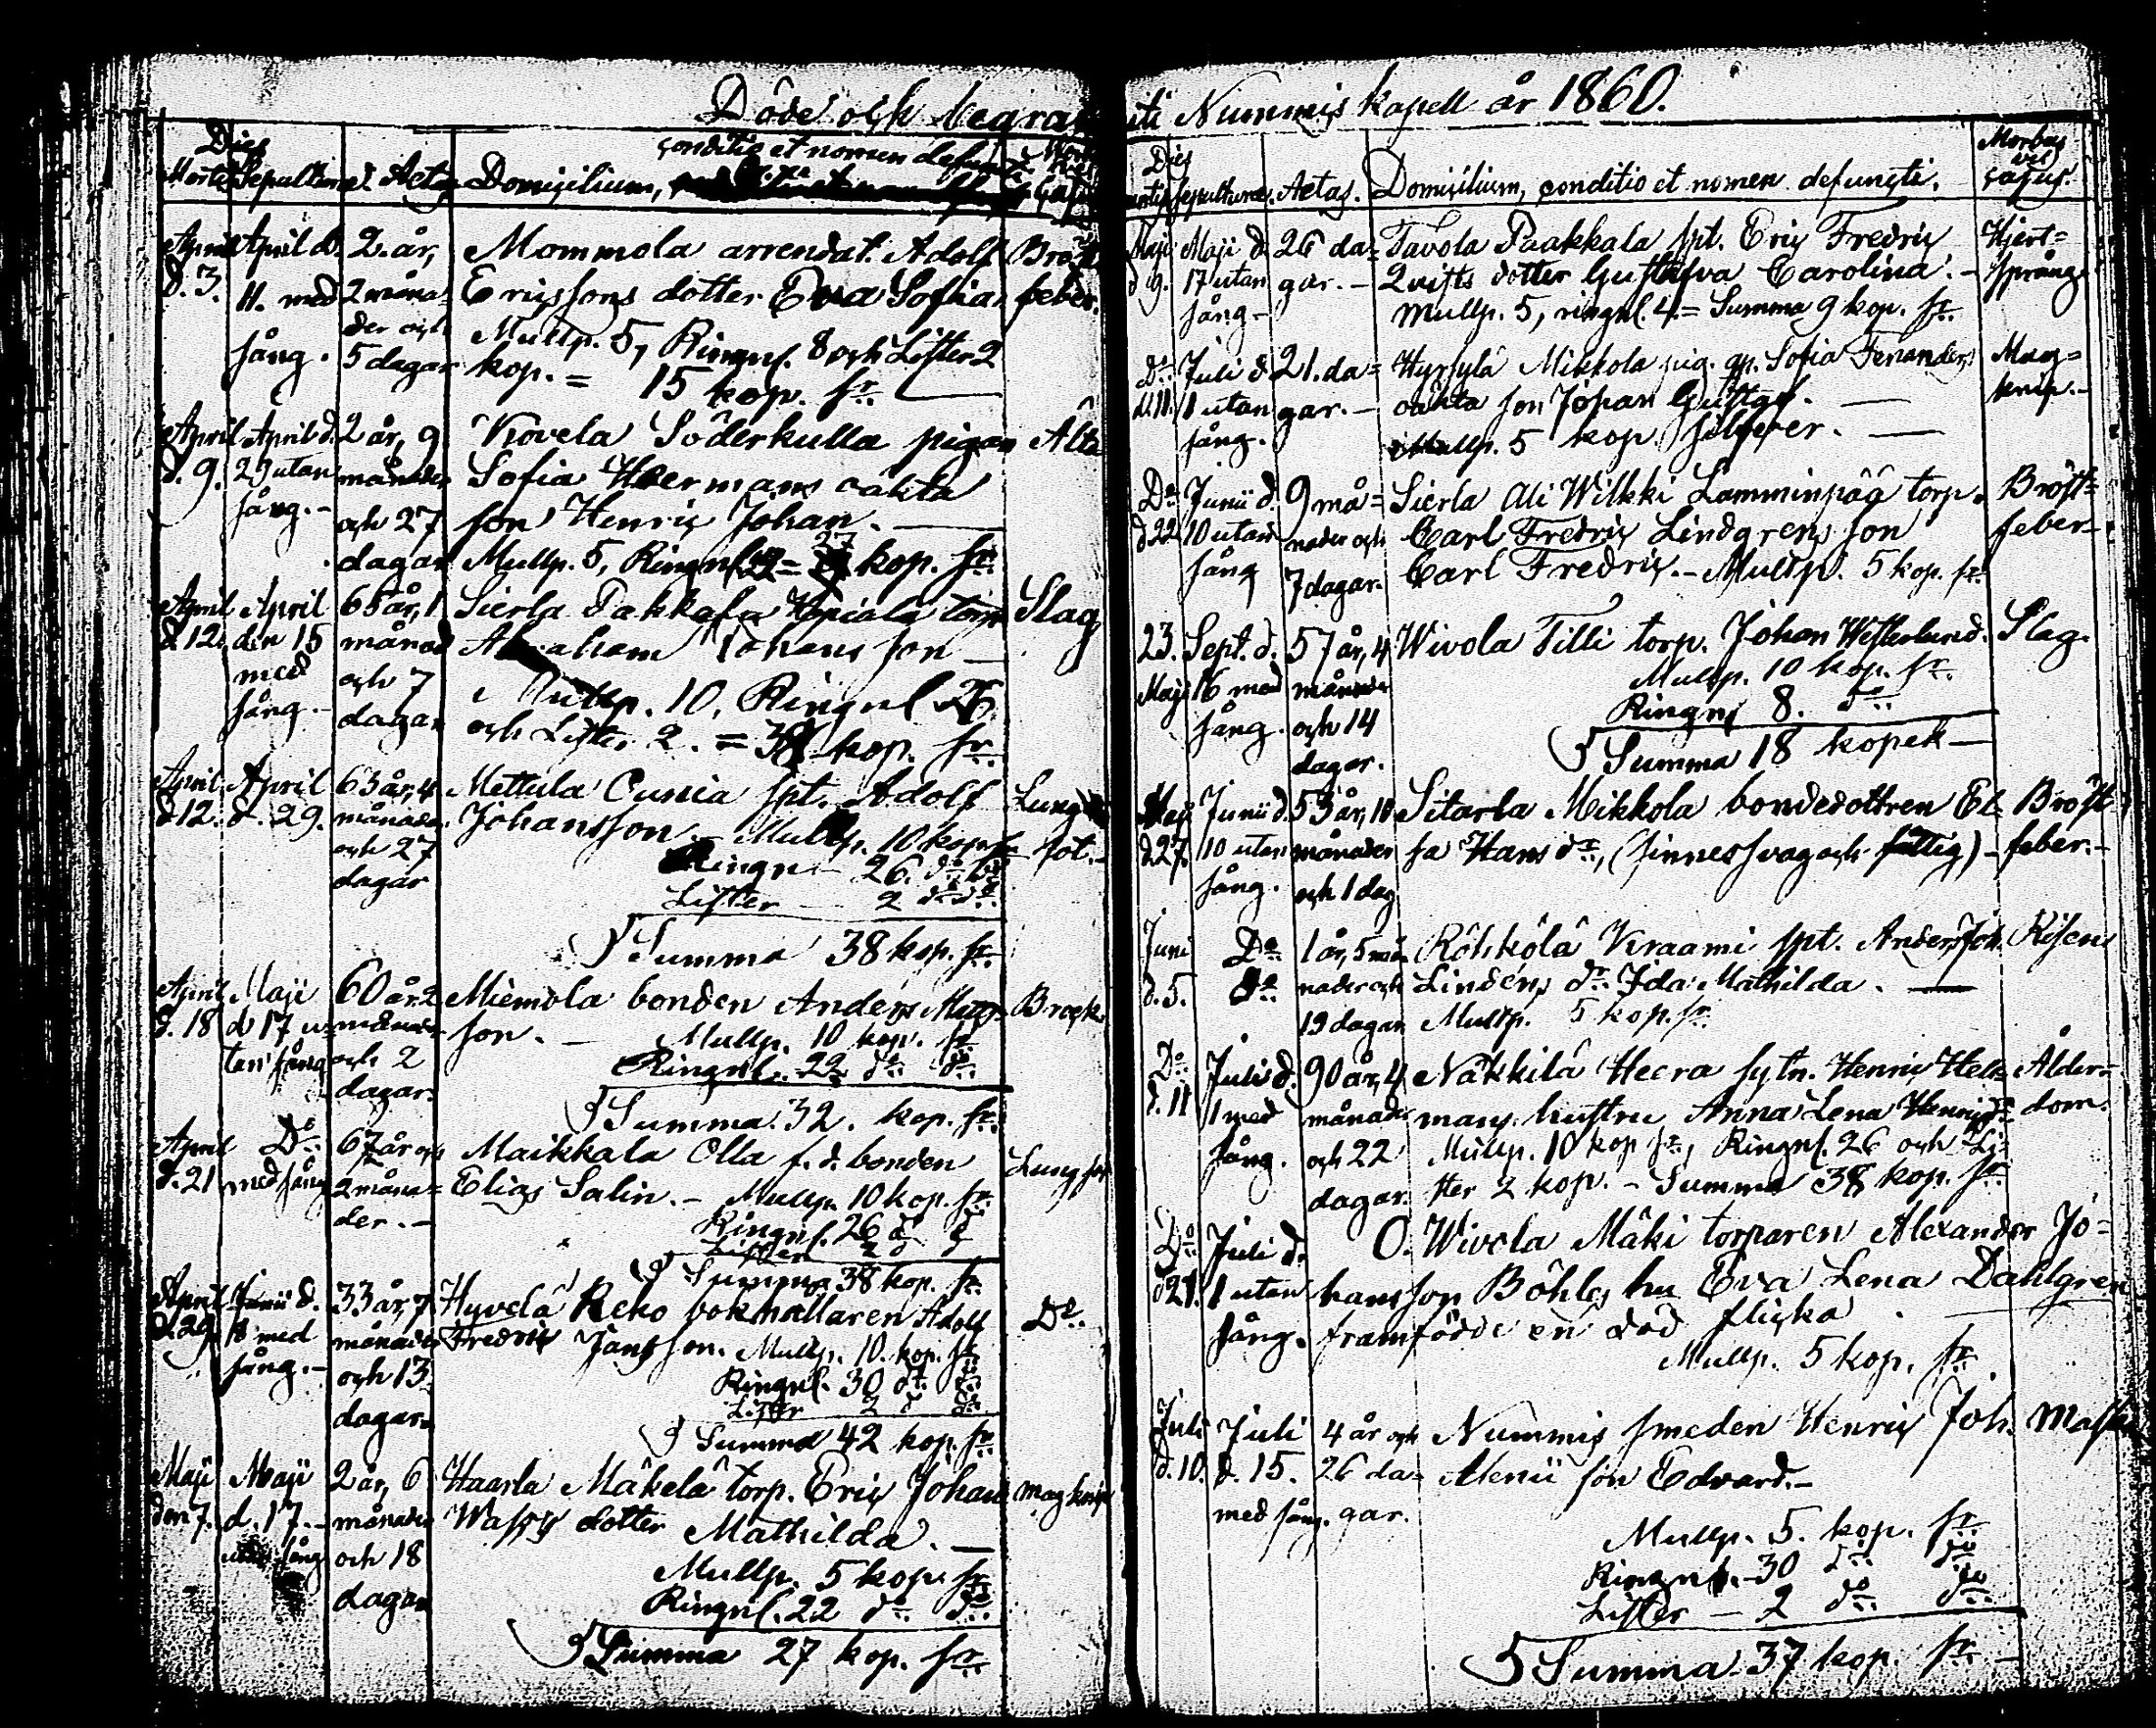 Döde och begrafne
uti Nummis kapell år 1860.
Dies
Mortis Sepulturæ Aetas Domicilium, conditio et nomen defuncti
April d. 3. April d. 11. med sång. 2 år, 2 månader och 5 dagar
Mommola arrendat. Adolf Bröst
Ericssons dotter Eva Sofia. feber.
Mullp. 5, Ringnl. 8 och Lister 2
kop. = 15 kop. sr.
April d. 9. April d. 29 utan sång. 2 år, 9 månader och 27 dagar
Kovela Söderkulla pigan
Sofia Hermans oäkta
son Henric Johan.
Mullp. 5, Ringnl. 22 = 27 kop. sr.
April d. 12. April den 15 med sång. 65 år, 1 månad och 7 dagar
Sierla Pakkala torp. Slag
Abraham Johans son
Mullp. 10, Ringnl. 26
och Lister 2. = 38 kop. sr.
April d. 12. April d. 29. 63 år, 4 månader och 27 dagar
Mettula Cunia spt. Adolf Lung
Johansson. Mullp. 10 kop. sr. sot.
Ringnl. 26. do do
Lister 2 do do
Summa 38 kop. sr.
April d. 18 Maji d. 17 utan sång 60 år 2 månader och 2 dagar.
Miemola bonden Anders Matts- Brock
son. Mullp. 10 kop. sr.
Ringnl. 22 do do
Summa. 32. kop. sr.
April d. 21 Do med sång 67 år och 2 månader.
Maikkala Olla f. d. bonden Lungsot
Elias Salin. Mullp. 10 kop. sr.
Ringnl. 26 d d
Lister 2 d d
Summa 38 kop. sr.
April d. 29. Junii d. med sång. 33 år, 7 månader och 13 dagar.
Hyvelä Reko bokhållaren Adolf Do.
Fredric Jansson. Mullp. 10. kop. sr.
Ringnl. 30 do do
Lister 2 d do
Summa 42 kop. sr.
Maji den 7. Maji d. 17. sång 2 år, 6 månader och 18 dagar
Haarla Mäkelä torp. Eric Johan magknip
Wass dotter Mathilda.
Mullp. 5 kop. sr.
Ringnl. 22 do do
Summa 27 kop. sr.
Dies
Mortis Sepulturæ. Aetas. Domicilium, conditio et nomen defuncti. Morbus vel casus.
Maji d. 9. Maji d. 17 utan sång 26 dagar.
Tavola Paakkala spt. Eric Fredric Hjert-
Qvists dotter Gustafva Carolina. språng
Mullp. 5, ringnl. 4. = Summa 9 kop. sr.
Do d. 11. Juli d. 1 utan sång. 21. dagar.
Hyrsylä Mikkola pig. Sofia Fernanders Mag-
oäkta son Johan Gustaf. knip.
Mullp. 5 kop. silfver.
Do d. 22 Junii d. 10 utan sång 9 månader och 7 dagar.
Sierla Ali Wilkki Lamminpää torp. Bröst-
Carl Fredric Lindgrens son feber
Carl Fredric. Mullp. 5 kop. sr.
23. Maji Sept. d. 16 med sång. 57 år, 4 månader och 14 dagar.
Wivola Tilli torp. Johan Westerlund. Slag.
Mullp. 10 kop. sr.
Ringnl 8. do
Summa 18 kopek
Maji d. 27. Junii d. 10 utan sång. 53 år, 10 månader och 1 dag
Sitarla Mikkola bondedottren El- Bröst
sa Hans dr., (sinnessvag och fattig) feber.
Juni d. 5. Do Do 1 år, 5 månader och 19 dagar
Röhkölä Kraami spt. Anders Joh. Risen
Lindéns dr. Ida Mathilda.
Mullp. 5 kop. sr.
Do d. 11 Juli d. 1 med sång. 90 år, 4 månader och 22 dagar.
Näkkilä Heera sytn. Henric Her- Ålder-
mans hustru Anna Lena Henricsdr dom.
Mullp. 10 kop sr., Ringnl. 26 och Li-
ster 2 kop. - Summa 38 kop. sr.
Do d. 21. Juli d. 1 utan sång.
O. Wivola Mäki torparen Alexander Jo-
hansson Böhles hu Eva Lena Dahlgren
framfödde en död flicka
Mullp. 5 kop. sr.
Juli d. 10. Juli d. 15. med sång. 4 år och 26 dagar.
Nummis smeden Henric Joh. Mask
Alenii son Edvard.
Mullp. 5. kop. sr.
Ringnl. 30 do do
Lister - 2 do do
Summa 37 kop. sr.